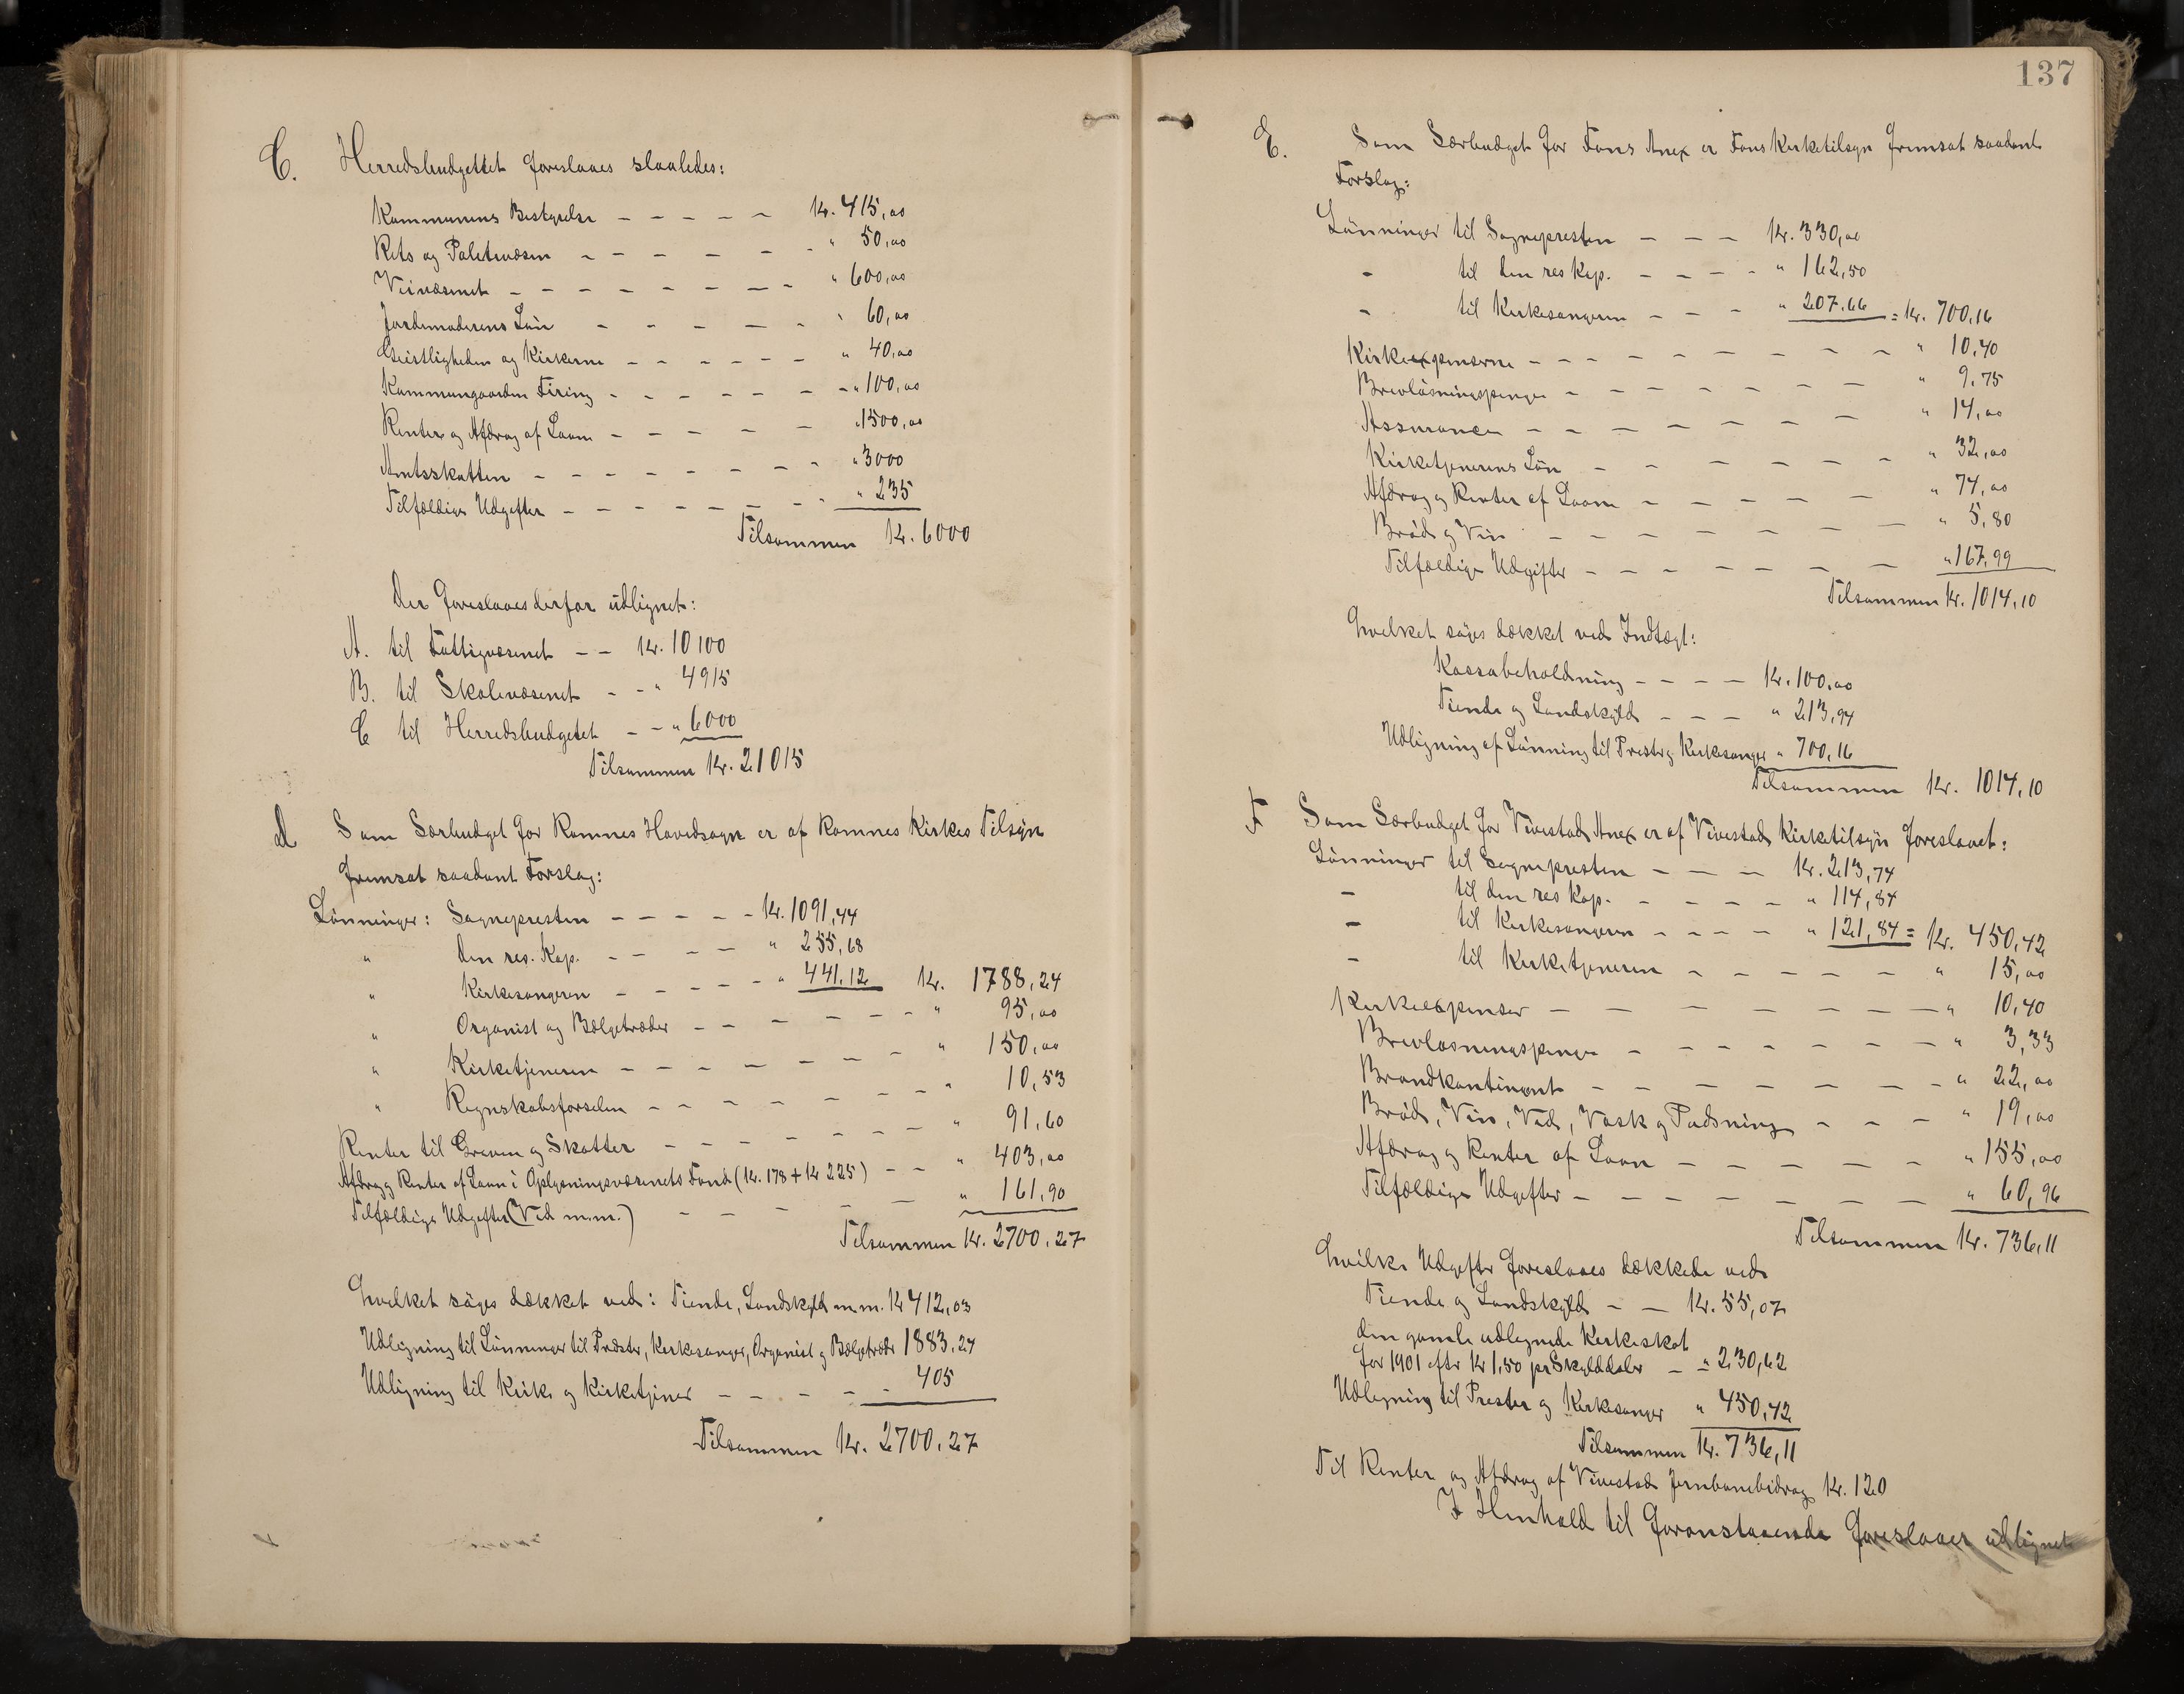 C. Herredsbudgettet foreslaaes slaaledes:
Kommunens Bestyrelse – – – – – Kr. 415,00
Rets og Politivæsen – – – – – – " 50,00
Veivæsenet – – – – – – – – " 600,00
Jordemoderens Løn – – – – – " 60,00
Geistligheden og Kirkerne – – – – – – " 40,00
Kommungaarden Firing – – – – – – " 100,00
Renter og Afdrag af Laan – – – – – " 1500,00
Amtsskatten – – – – – – – – " 3000
Tilfældige Udgifter – – – – – – – " 235
Tilsammen Kr. 6000
Der foreslaaes derfor udlignet:
A. til Fattigvæsenet – – Kr. 10100
B. til Skolevæsenet – – " 4915
C til Herredsbudgetet – – " 6000
Tilsammen Kr. 21015
d Som Særbudget for Ramnes Hovedsogn er af Ramnes Kirkes Tilsyn
fremsat saadant Forslag:
Lønninger: Sognepresten – – – – – Kr. 1091,44
" den res. Kap. – – – – " 255,68
" Kirkesangeren – – – – – " 441,12 Kr. 1788,24
" Organist og Bælgetræder – – – – – – – " 95,00
" Kirketjeneren – – – – – – – – " 150,00
" Regnskabsførselen – – – – – – – – " 10,53
Renter til Graven og Skatter – – – – – – – – " 91,60
Afdrag og Renter af Laan i Oplysningsvæsenets Fond (Kr. 178 + Kr 225) – – " 403,00
Tilfældige Udgifter (Ved m.m.) – – – – – " 161,90
Tilsammen Kr. 2700,27
hvilket søges dækket ved: Tiende, Landskyld m.m. Kr 412,03
Udligning til Lønninger til Præster, Kirkesanger, Organist og Bælgetræder 1883,24
Udligning til Kirke og Kirketjener – – – – – 405
Tilsammen Kr. 2700,27
137
E. Som Særbudget for Fons Anex er Fons Kirketilsyn fremsat saadant
Forslag:
Lønninger til Sognepresten – – – Kr. 330,00
– til den res Kap. – – – – " 162,50
– til Kirkesangeren – – – " 207.66 = Kr. 700,16
Kirkeexpenserne – – – – – – – – – " 10,40
Brevløsningspenge – – – – – – – – " 9,75
Assurance – – – – – – – " 14,00
Kirketjenerens Løn – – – – – – " 32,00
Afdrag og Renter af Laan – – – – – " 74,00
Brød og Vin – – – – – – – " 5,80
Tilfældige Udgifter – – – – – – – " 167,99
Tilsammen Kr. 1014,10
hvilket søges dækket ved Indtægt:
Kassabeholdning – – – – Kr. 100,00
Tiende og Landskyld – – – " 213,94
Udligning af Lønning til Prest og Kirkesanger " 700,16
Tilsammen Kr. 1014,10
F Som Særbudget for Vivestad Anex er af Vivestad Kirketilsyn foreslaaet:
Lønninger til Sognepresten – – – Kr. 213,74
– til den res Kap. – – – – " 114,84
– til Kirkesangeren – – – – " 121,84 = Kr. 450,42
– til Kirketjeneren – – – – – " 15,00
Kirkeexpenser – – – – – – – – " 10,40
Brevløsningspenge – – – – – – – " 3,33
Brandkontingent – – – – – – – " 22,00
Brød, Vin, Ved, Vask og Pudsning – – – " 19,00
Afdrag og Renter af Laan – – – – – " 155,00
Tilfældige Udgifter – – – – – – – " 60,96
Tilsammen Kr. 736,11
hvilke Udgifter foreslaaes dækkede ved
Tiende og Landskyld – – Kr. 55,07
den gamle udlignede Kirkeskat
for 1901 efter Kr 1,50 pr Skylddaler – – " 230,62
Udligning til Prester og Kirkesanger " 450,42
Tilsammen Kr. 736,11
Til Renter og Afdrag af Vivestads Jernbanebidrag Kr. 120
I Henhold til foranstaaende foreslaaes udlignet